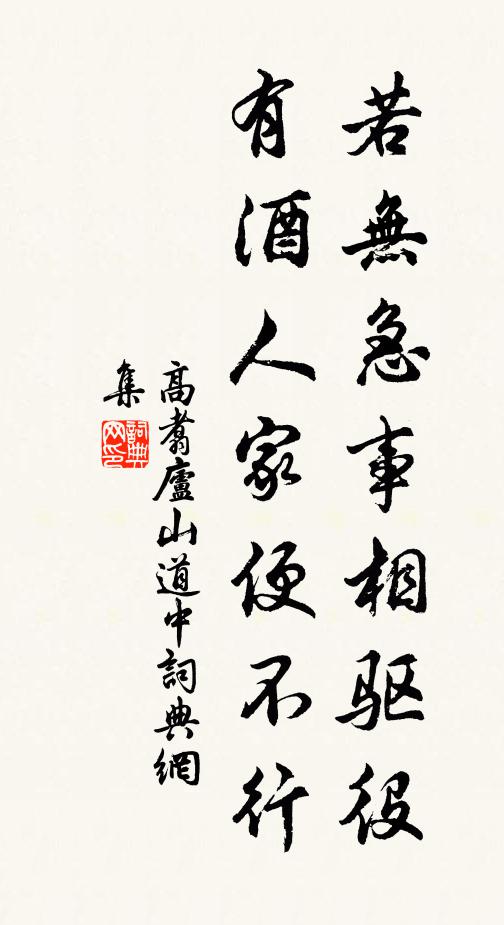 若無急事相驱役
有酒人家便不行
高翥廬山道中詞典網
集
詞典
网印